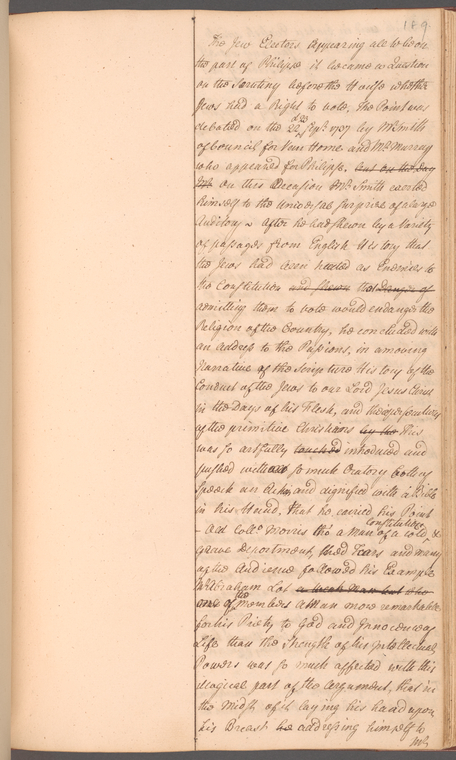 189.
The Jew Electors appearing all to be on
the part of Philipse it became a Question
on the Scrutiny before the House whether
Jews had a Right to vote. The Point was
debated on the 22 23 Sept. 1737 by Mr Smith
of Council for Van Horne and Mr Murray
who appeared for Philipse. but on the day
on this Occasion Mr. Smith exerted
himself to the universal surprise of a large
Auditory. After he had shewn by a Variety
of passages from English History that
the Jews had been treated as Enemies to
the Constitution and shewn that Danger of
admitting them to vote would endanger the
Religion of the Country, he concluded with
an address to the Passions, in a moving
Narrative of the Scripture History of the
Conduct of the Jews to our Lord Jesus Christ
in the Days of his Flesh, and their persecutions
of the primitive Christians by the This
was so artfully touched introduced and
pushed with so much Oratory
and dignified with a Bible
in his Hand, that he carried his Point
- Old Collo. Morris tho' a Man of a cold Constitution &
grave deportment, shed Tears and many
of the Audience followed his Example
Mr Abraham Lot a weak Man but who
one of the Members a Man more remarkable
for his Piety to God and Innocency of
Life than the Strength of his Intellectual
Powers was so much affected with this
part of the Argument, that in
the Midst of it laying his hand upon
his Breast he addressing himself to
Mr